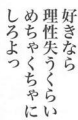 好きなら
理性失うくらい
めちゃくちゃに
しろよっ